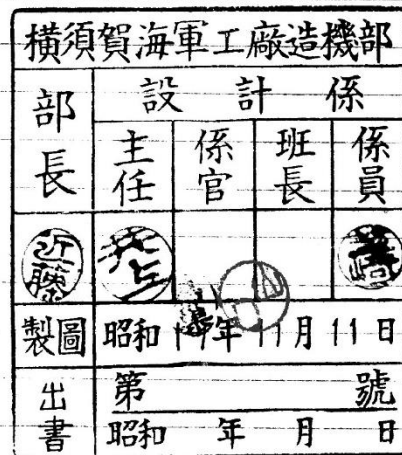 横須賀海軍工廠造機部
部長
設計係
主任
係官
班長
係員
近藤
製圖
昭和 年11月11日
出書
第 號
昭和 年 月 日